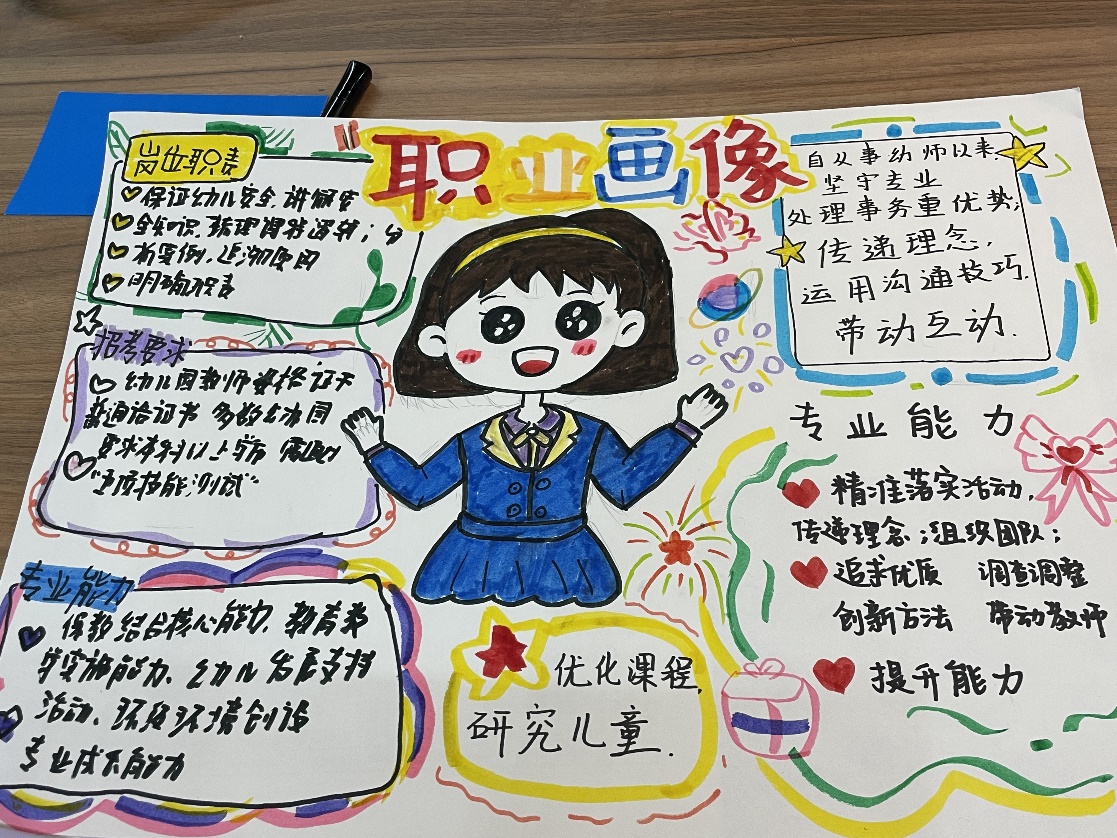 职业画像
岗位职责
保证幼儿安全、讲解安
全知识、梳理
案例、
明确职责
招考要求
幼儿园教师资格证天
普通话证书 多数幼儿园
要求本科以上学历 需
技能测试"
专业能力
保教结合核心能力、教育教
学实施能力、幼儿发展支持
活动、环境创设
专业成长能力
自从事幼师以来,
坚守专业
处理事务重优势;
传递理念,
运用沟通技巧.
带动互动.
专业能力
精准落实活动,
传递理念;组织团队;
追求优质 调查调整
创新方法 带动教师
提升能力
优化课程,
研究儿童.